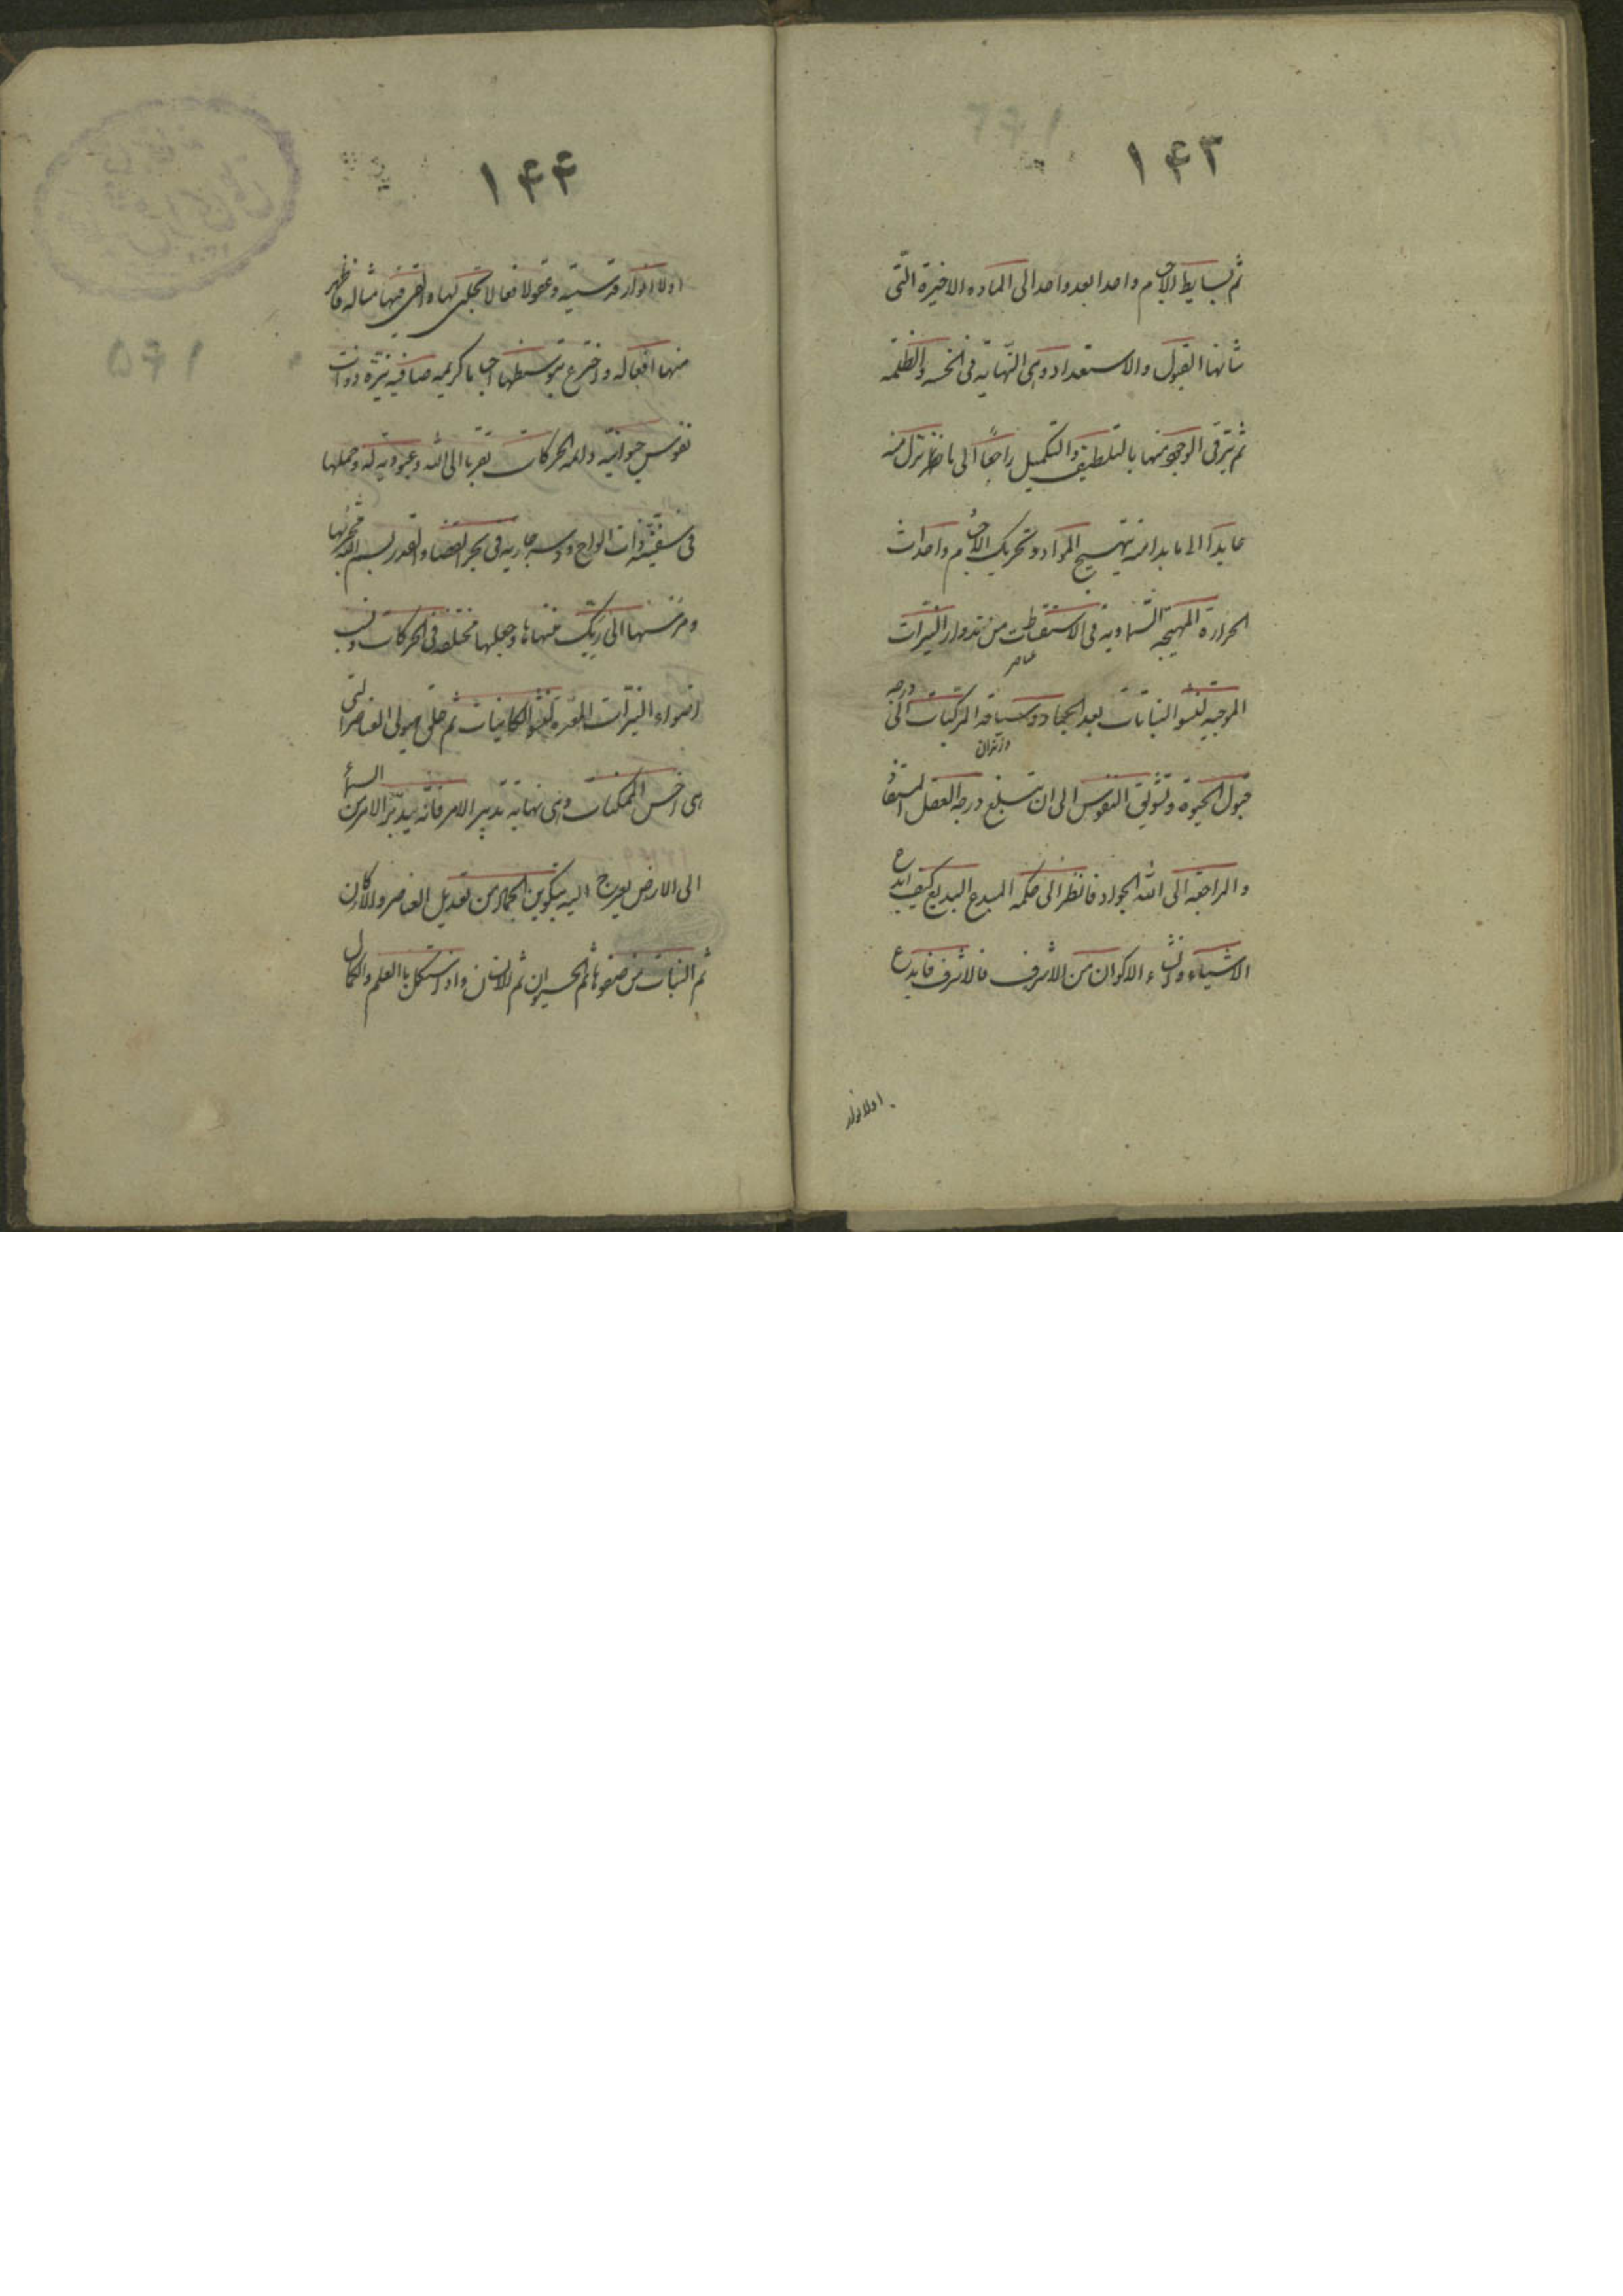 ۱۴۳
ثم بسایط الاجسام واحدا بعد واحد الی الماده الاخیرة التی
شانها القبول والاستعداد وهی النهایة فی الخسة والظلمة
ثم یترقی الوجود منها بالتلطیف والتکمیل راجعاً الی ما نزل منه
عایداً الی ما بدا منه بتهییج المواد وتحریک الاجسام واحداث
الحرارة المهیجه السماویة فی الاستقطات من تداویر النیرات
عناصر
الموجبه لنشو النباتات بعد الجماد وسیاقة المرکبات الی درجه
قبول الحیوة وتشویق النفوس الی ان تبلغ درجه العقل المستفاد
والراجعة الی الله الجواد فانظر الی حکمه المبدع البدیع کیف ابدع
الاشیاء وانشاء الاکوان من الاشرف فالاشرف فابدع
اولا انوار
۱۴۴
اولا انوارا قدسیة وعقولا فعالا تجلی لها والقی فیها مثاله فاظهر
منها افعاله واخترع بتوسطها اجساما کریمه صافیه نیرة ذوات
نفوس حیوانیه دائمه الحرکات تقربا الی الله وعبودیة له وحملها
فی سفینة ذات الواح ودسر جاریه فی بحر القضا والقدر بسم الله مجریها
ومرسیها الی ربک منتهاها وجعلها مختلفه فی الحرکات ونسب
اضواء النیرات المعده لنشو الکاینات ثم خلق هیولی العناصر التی
هی اخس الممکنات وهی نهایة تدبیر الامر فانه یدبر الامر من السماء
الی الارض یعرج الیه بتکوین الجماد من تعدیل العناصر والارکان
ثم النبات من صفوها ثم الحیوان ثم الانسان واذا استکمل بالعلم والکمال